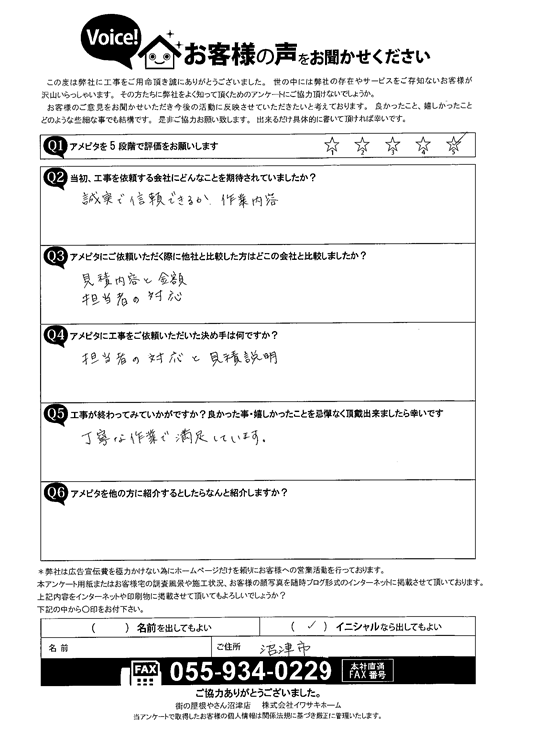 Voice!
お客様の声をお聞かせください
この度は弊社に工事をご用命頂き誠にありがとうございました。 世の中には弊社の存在やサービスをご存知ないお客様が
沢山いらっしゃいます。 その方たちに弊社をよく知って頂くためのアンケートにご協力頂けないでしょうか。
お客様のご意見をお聞かせいただき今後の活動に反映させていただきたいと考えております。 良かったこと、嬉しかったこと
どのような些細な事でも結構です。 是非ご協力お願い致します。 出来るだけ具体的に書いて頂ければ幸いです。
Q1 アメピタを5段階で評価をお願いします
☆ ☆ ☆ ☆ ☆
1 2 3 4 5
Q2 当初、工事を依頼する会社にどんなことを期待されていましたか?
誠実で信頼できるか 作業内容
Q3 アメピタにご依頼いただく際に他社と比較した方はどこの会社と比較しましたか?
見積内容と金額
担当者の対応
Q4 アメピタに工事をご依頼いただいた決め手は何ですか?
担当者の対応と見積説明
Q5 工事が終わってみていかがですか?良かった事・嬉しかったことを忌憚なく頂戴出来ましたら幸いです
丁寧な作業で満足しています。
Q6 アメピタを他の方に紹介するとしたらなんと紹介しますか?
*弊社は広告宣伝費を極力かけない為にホームページだけを頼りにお客様への営業活動を行っております。
本アンケート用紙またはお客様宅の調査風景や施工状況、お客様の顔写真を随時ブログ形式のインターネットに掲載させて頂いております。
上記内容をインターネットや印刷物に掲載させて頂いてもよろしいでしょうか?
下記の中から〇印をお付下さい。
( ) 名前を出してもよい ( ✓ ) イニシャルなら出してもよい
名前 ご住所 沼津市
FAX 055-934-0229 本社直通 FAX番号
ご協力ありがとうございました。
街の屋根やさん沼津店 株式会社イワサキホーム
当アンケートで取得したお客様の個人情報は関係法規に基づき厳正に管理いたします。